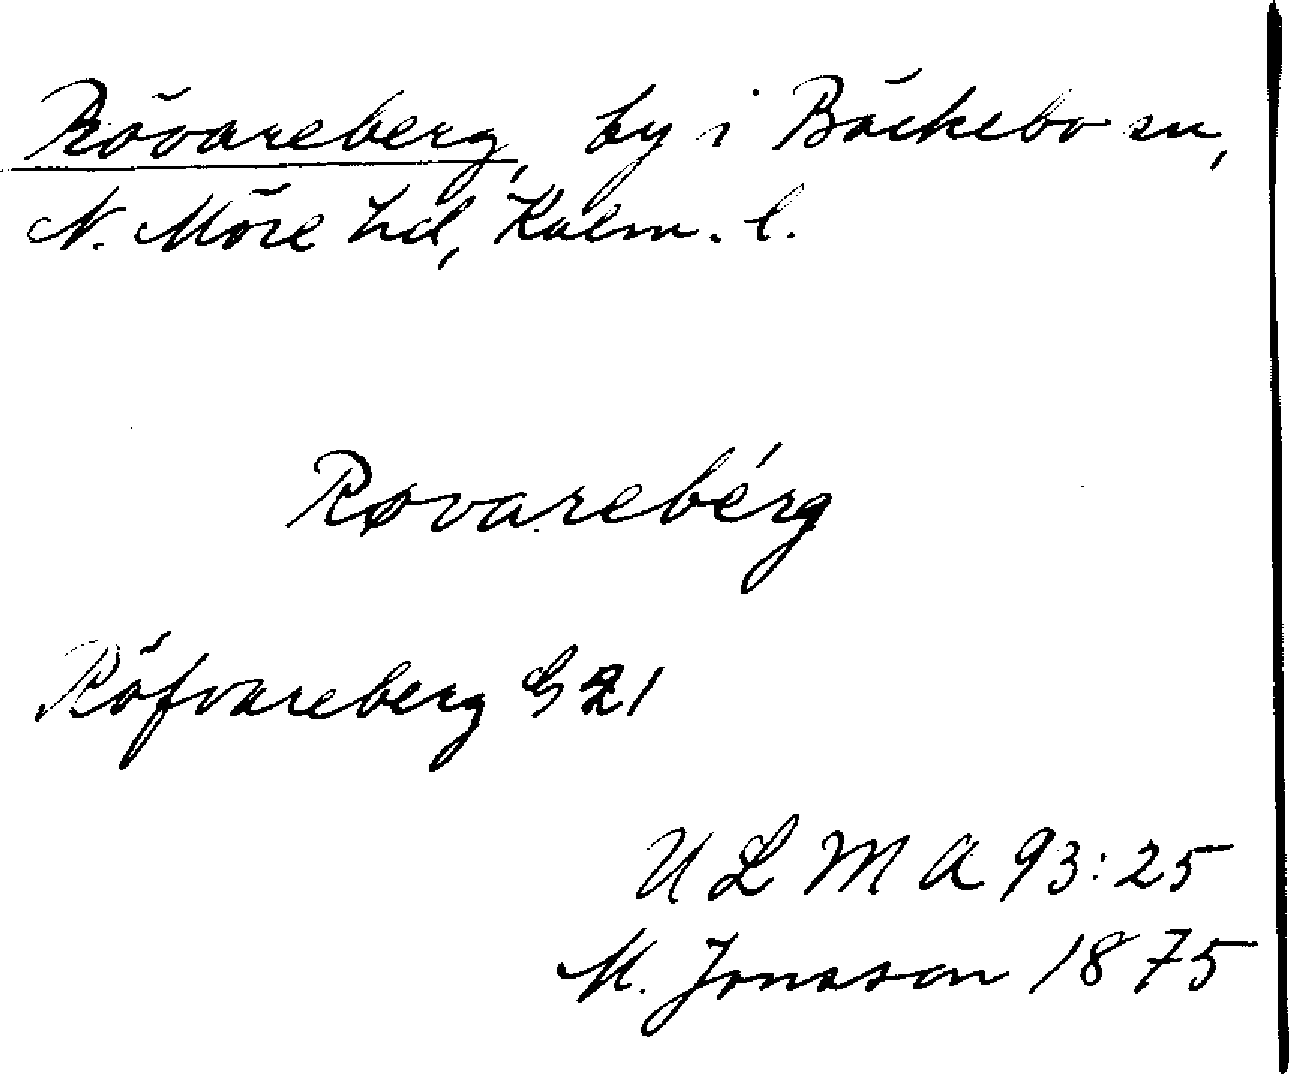 Rövareberg, by i Bäckebo sn,
N. Möre hd, Kalm. l.
Røvarebérg
Röfvareberg G 21
ULMA 93:25
M. Jonsson 1875